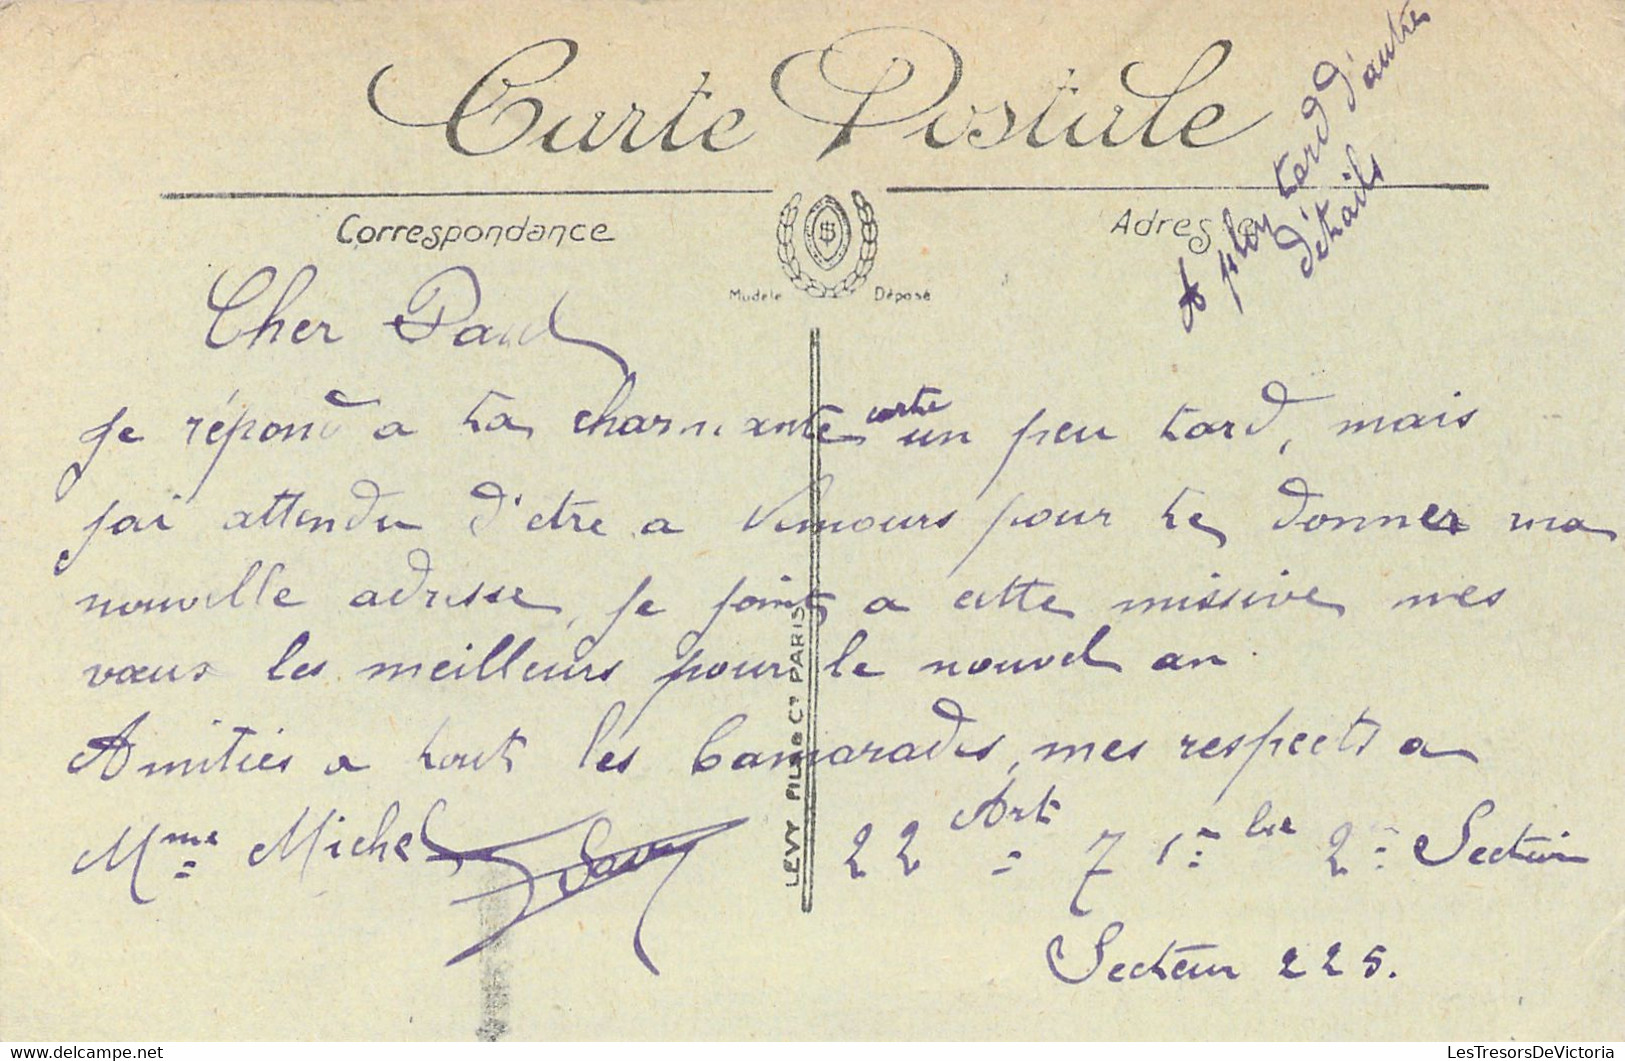 Carte Postale
Correspondance
Adresse
Modèle Déposé
A plus tard d'autres
détails
Cher Paul
Je répond a ta charmante carte un peu tard, mais
j'ai attendu d'être a Nemours pour te donner ma
nouvelle adresse, je joint a cette missive mes
vœux les meilleurs pour le nouvel an.
Amitiés a tout les Camarades, mes respects a
Mme Michel
22 Art 7 1re bie 2e Section
Secteur 225.
LEVY FILS & Cie PARIS
LesTresorsDeVictoria